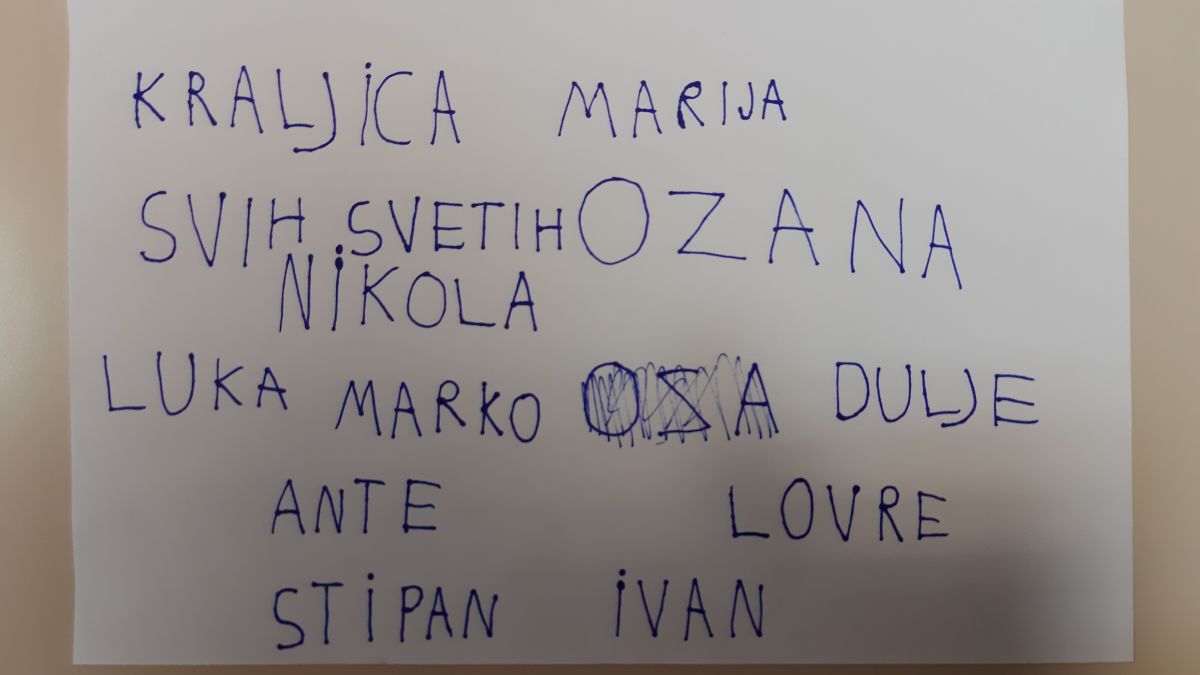 KRALJiCA MARIJA
SVIH SVETIH OZANA
NiKOLA
LUKA MARKO DULJE
ANTE LOVRE
STiPAN iVAN